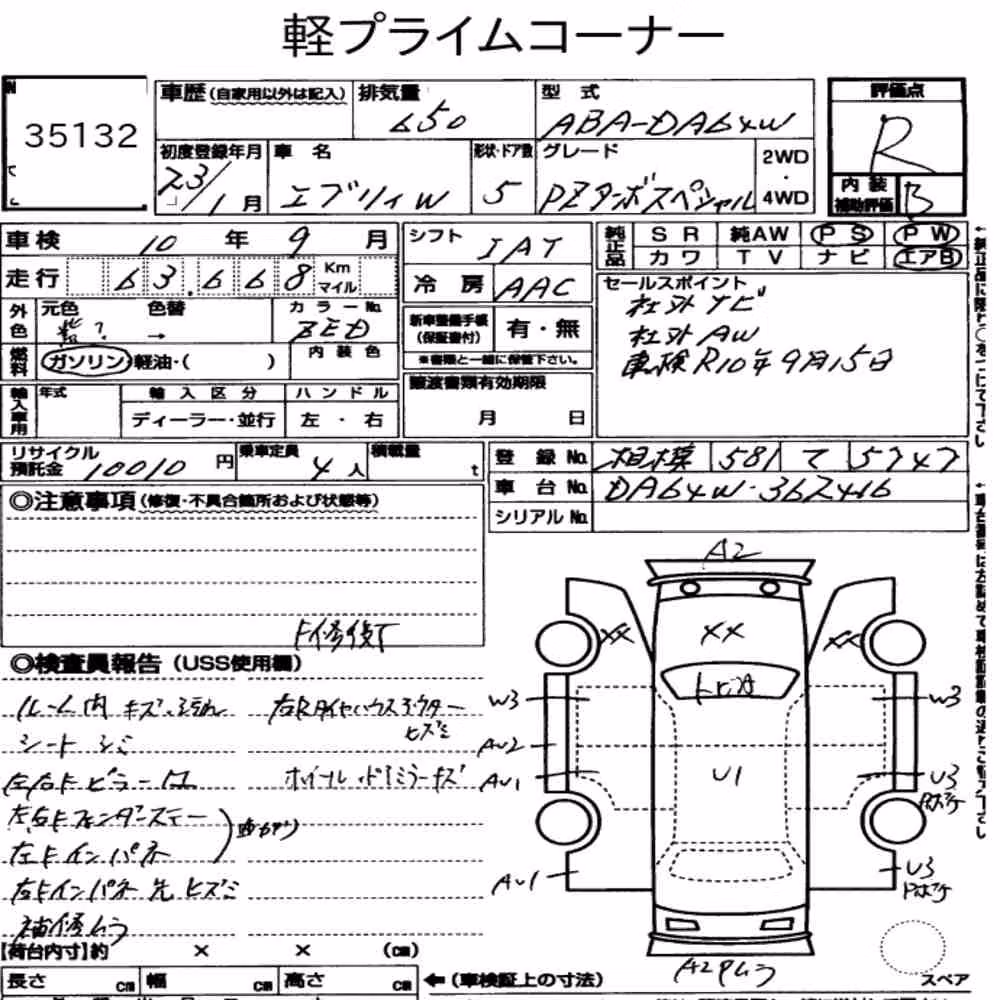 軽プライムコーナー
35132
車歴 (自家用以外は記入)
排気量
650
型式
ABA-DA64W
評価点
R
初度登録年月
23/1月
車名
エブリィW
形状・ドア数
5
グレード
PZターボスペシャル
2WD
・
4WD
内装
補助評価
B
車検 10年9月
走行 63,668 Km
マイル
シフト IAT
冷房 AAC
純正品
SR 純AW PS PW
カワ TV ナビ エアB
外色
元色
色替
→
カラーNo.
ZED
燃料
ガソリン・軽油・( )
内装色
新車整備手帳
(保証書付)
有・無
※書類と一緒に保管下さい。
セールスポイント
社外ナビ
社外AW
車検R10年9月15日
輸入車用
年式
輸入区分
ディーラー・並行
ハンドル
左・右
譲渡書類有効期限
月 日
リサイクル
預託金 10010円
乗車定員
4人
積載量
t
登録No. 相模 581 て 5747
車台No. DA64W-362416
シリアルNo.
◎注意事項 (修復・不具合箇所および状態等)
F修復
◎検査員報告 (USS使用欄)
ルーム内キズ・汚れ
シートシミ
左右Fピラー
左右Fフェンダーステー
左Fインパネ
曲がり
右Fインパネ先ヒズミ
補修ムラ
右Rタイヤハウスアウター
ヒズミ
ホイール ドアミラーキズ
A2
XX
XX
XX
トビ石
W3
W3
AU2
AU1
U1
U3
U3
AU1
A2 Pムラ
スペア
【荷台内寸】約 × × (cm)
長さ cm 幅 cm 高さ cm
←(車検証上の寸法)